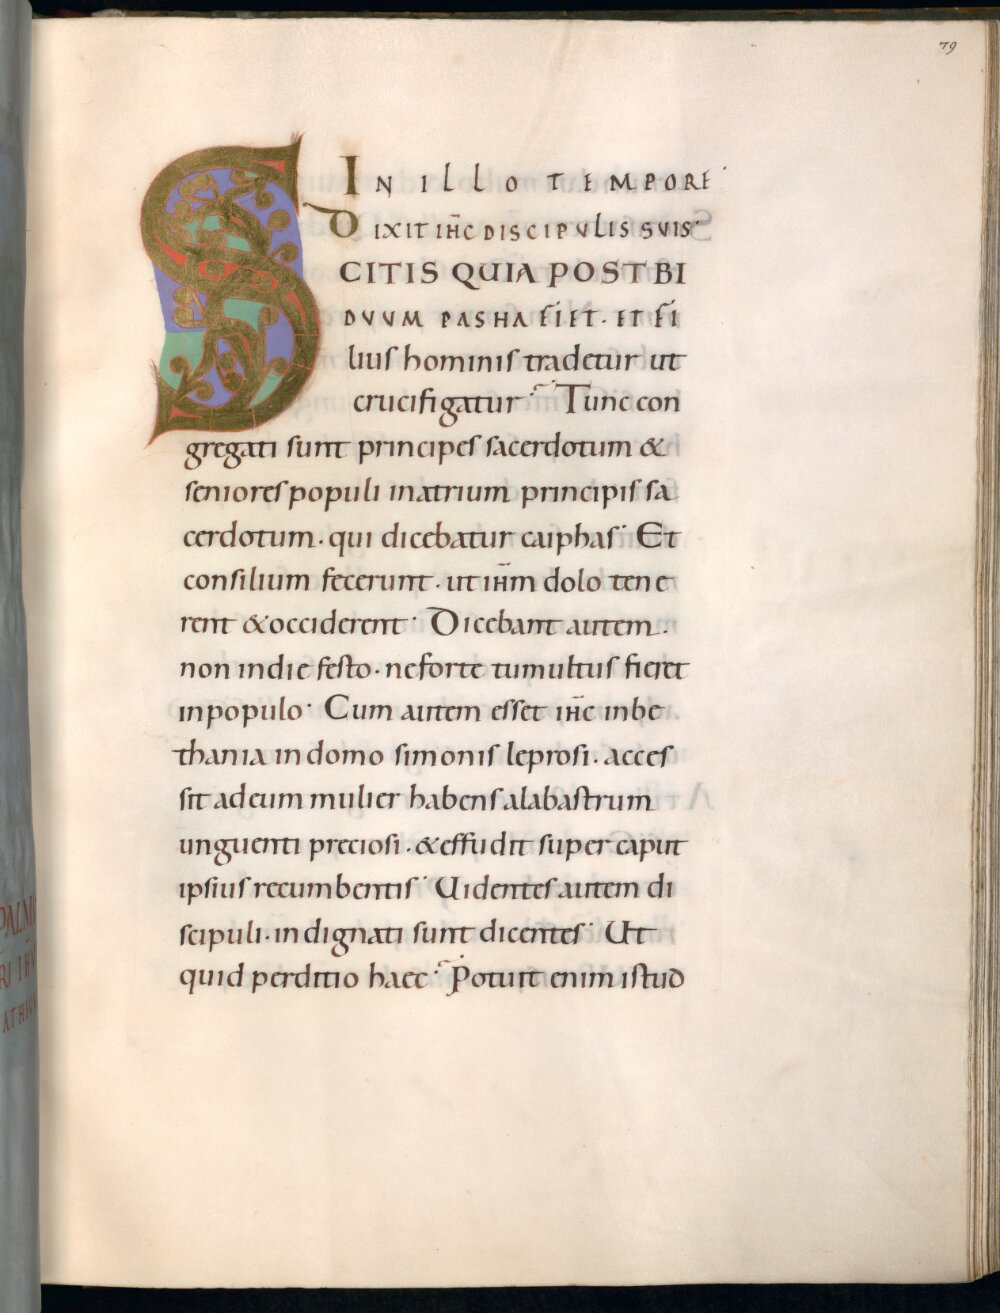 79
IN ILLO TEMPORE
DIXIT IH̅C DISCIPULIS SUIS·
SCITIS QUIA POST BI
DUUM PASHA FIET· ET FI
lius hominis tradetur ut
crucifigatur· Tunc con
gregati sunt principes sacerdotum &
seniores populi in atrium principis sa
cerdotum· qui dicebatur caiphas· Et
consilium fecerunt· ut ih̅m dolo tene
rent & occiderent· Dicebant autem·
non in die festo· ne forte tumultus fieret
in populo· Cum autem esset ih̅c in be
thania in domo simonis leprosi· acces
sit ad eum mulier habens alabastrum
unguenti preciosi· & effudit super caput
ipsius recumbentis· Uidentes autem di
scipuli· indignati sunt dicentes· Ut
quid perditio haec· Potuit enim istud